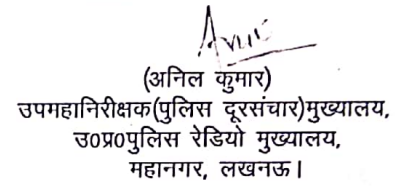 (अनिल कुमार)
उपमहानिरीक्षक(पुलिस दूरसंचार)मुख्यालय,
उ०प्र०पुलिस रेडियो मुख्यालय,
महानगर, लखनऊ।